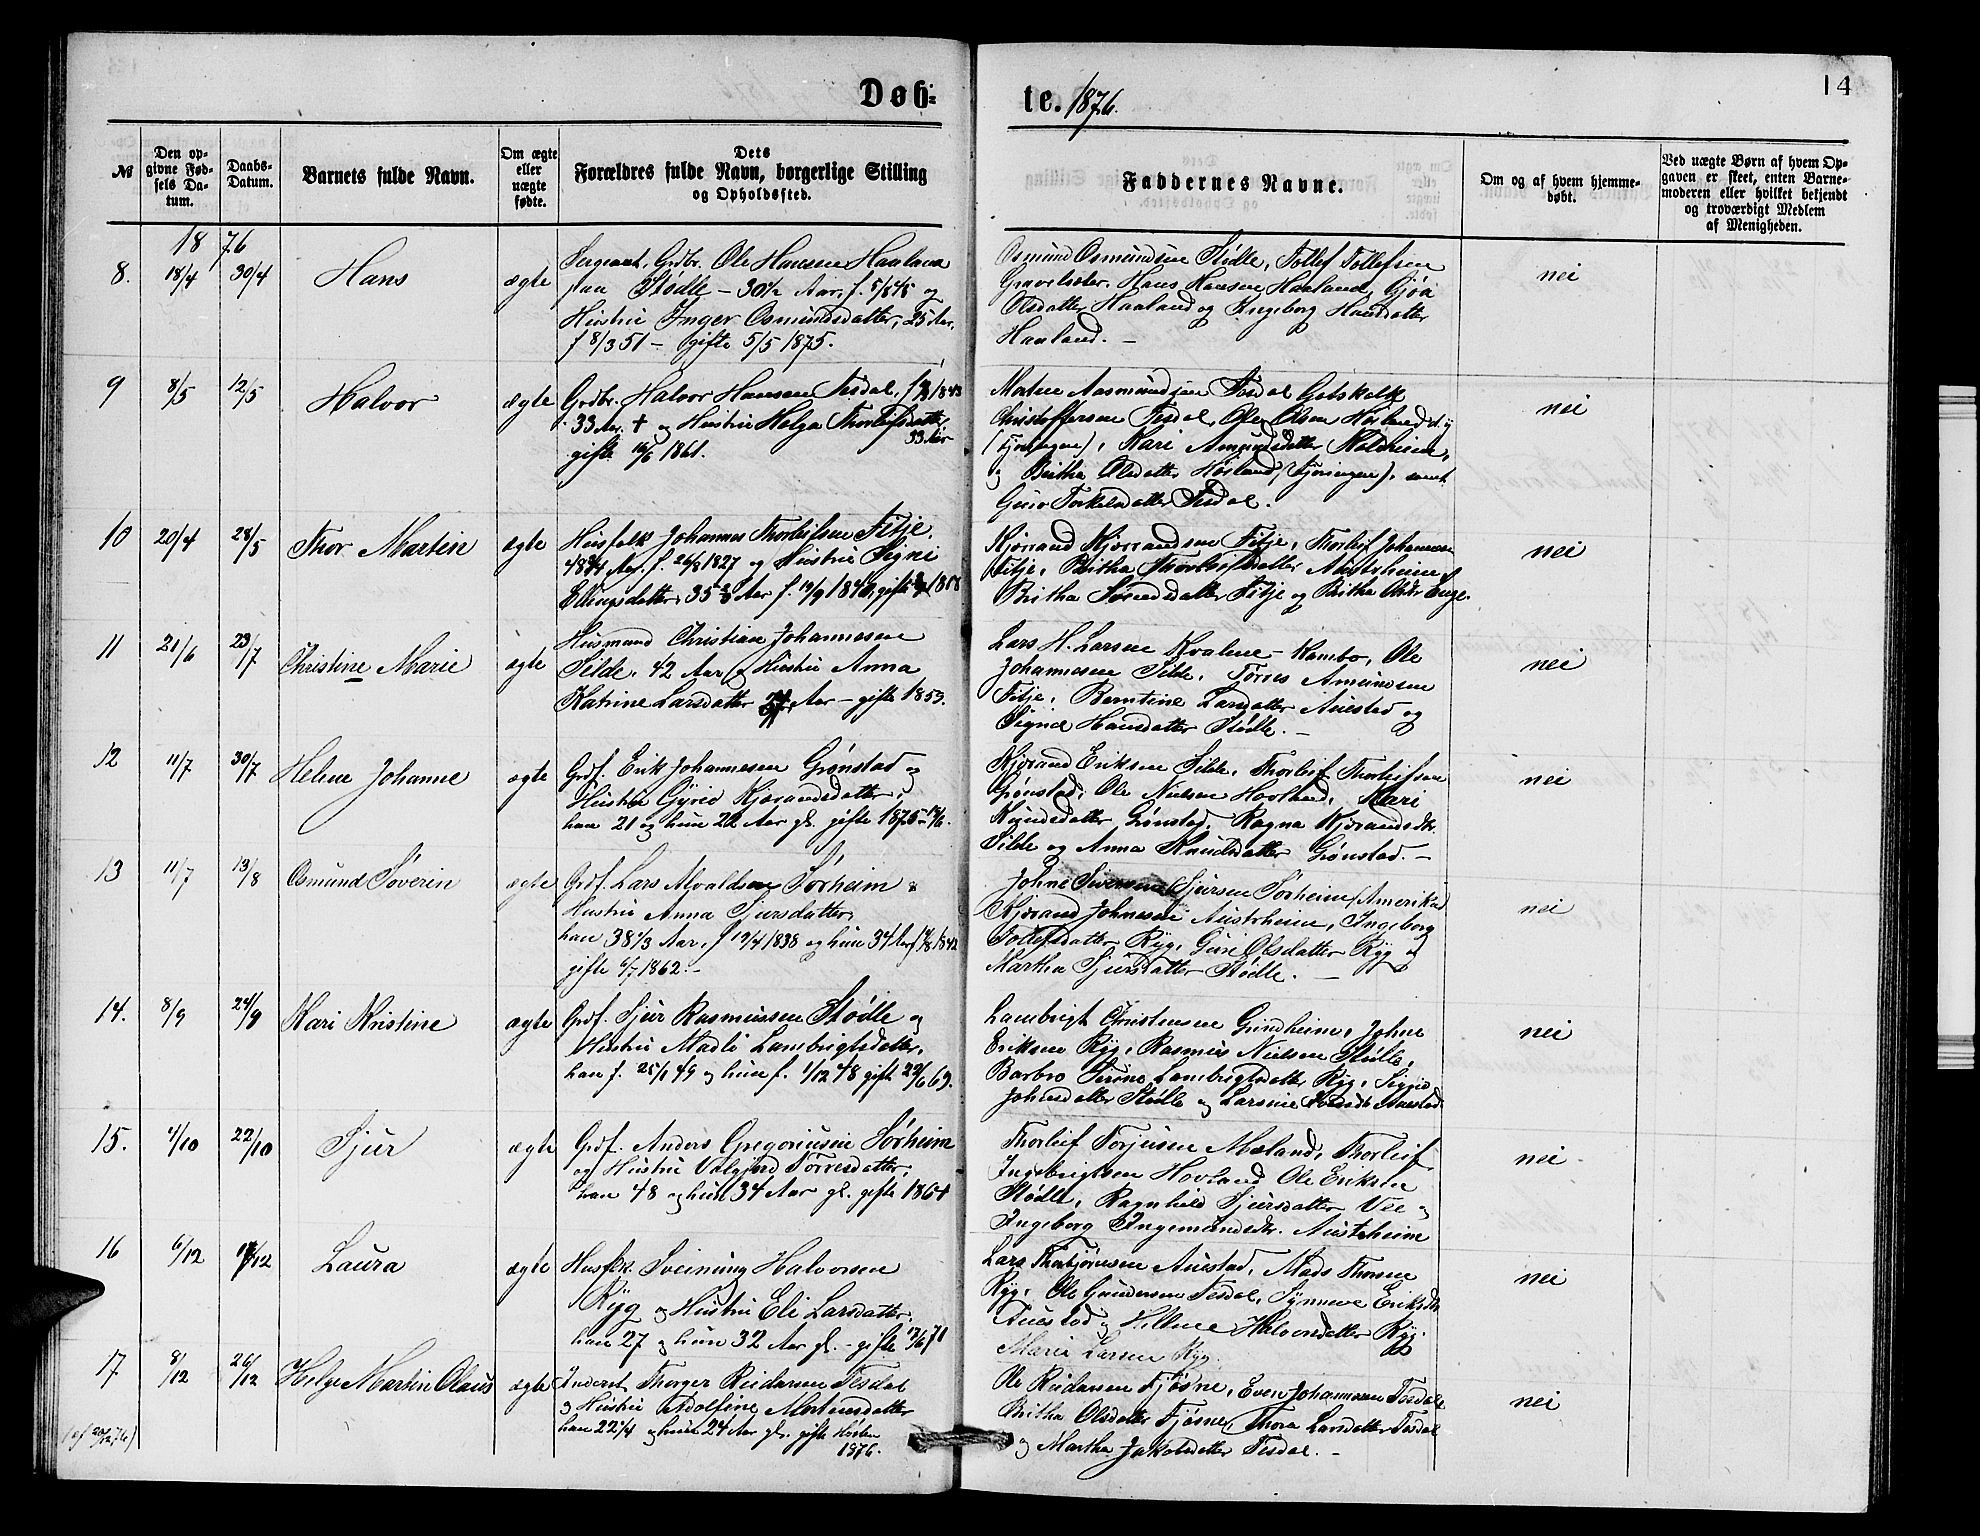 Døb-
te. 1876.
14
№
Den op-
givne Fød-
sels Da-
tum.
Daabs-
Datum.
Barnets fulde Navn.
Om ægte
eller
uægte
fødte.
Dets
Forældres fulde Navn, borgerlige Stilling
og Opholdssted.
Faddernes Navne.
Om og af hvem hjemme-
døbt.
Ved uægte Børn af hvem Op-
gaven er skeet, enten Barne-
moderen eller hvilket bekjendt
og troværdigt Medlem
af Menigheden.
1876
8. 18/4 30/4 Hans ægte
Sergeant, Grdbr. Ole Hansen Haaland
paa Stødle - 30½ Aar, f. og
Hustru Inger Osmundsdatter, 25 Aar,
f 8/3 51 - gifte 5/5 1875.
Osmund Osmundsen Stødle, Tollef Tollefsen
Hans Hansen Haaland, Gjøa
Olsdatter Haaland og Ingeborg Hansdatter
Haaland. -
nei
9 8/5 12/5 Halvor ægte
Grdbr. Halvor Hansen Tesdal, 1843
33 Aar. + og Hustru Helga Thorleifsdatter
33 Aar
gifte 1861.
Aasmundsen Tesdal, Gotskalk
Christoffersen Tesdal, Ole Olsen Høiland
Kari Amundsdatter
og Britha Olsdatter Høiland, samt
Guro Torkelsdatter Tesdal.
nei
10 20/4 28/5 Thor Martin ægte
Husfolk Johannes Thorleifsen Fitje,
48¾ Aar, f. 26/8 1827 og Hustru Signi
Ellingsdatter, 35 Aar f. 12/9 gifte
Kjørand Kjørandsen Fitje, Thorleif Johannesen
Fitje, Britha Thorleifsdatter Austrheim,
Britha Fitje og Britha Enge.
nei
11 21/6 23/7 Christine Marie ægte
Husmand Christian Johannesen
Silde, 42 Aar, Hustru Anna
Katrine Larsdatter Aar - gifte 1853.
Lars H. Larsen Kvalene - Kambo, Ole
Johannesen Silde, Torres Amundsen
Fitje, Berntine Larsdatter Auestad og
Signe Hansdatter Stødle. -
nei
12 11/7 30/7 Helene Johanne ægte
Grdf. Erik Johannesen Grønstad og
Hustru Gyrid Kjørandsdatter,
han 21 og hun 22 Aar gl. gifte 1875
Kjørand Eriksen Silde, Thorleif Thorleifsen
Grønstad, Ole Nielsen Hovland, Kari
Knudsdatter Grønstad, Ragna Kjørandsdtr.
Silde og Anna Knudsdatter Grønstad. -
nei
13 11/7 13/8 Osmund Søverin ægte
Grdf. Lars Alvaldsen Sørheim &
Hustru Anna Sjursdatter,
han 38⅓ Aar, f 19/4 1838 og hun 34 Aar 1842
gifte 6/7 1862. -
Johne Sjursen Sørheim (Amerika)
Kjørand Johnesen Austrheim, Ingeborg
Tollefsdatter Ryg, Guri Olsdatter Ryg og
Martha Sjursdatter Stødle. -
nei
14. 8/9 24/9 Kari Kristine ægte
Grdf. Sjur Rasmussen Stødle og
Hustru Madli Lambrigtsdatter,
han f. 25/1 49 og hun f. 1/12 48 gifte 22/6 69.
Lambrigt Christensen Grindheim, Johne
Eriksen Ryg, Rasmus Nielsen Stødle,
Barbro Serine Lambrigtsdatter Ryg, Siggrid
Johnsdatter Stødle og Larsine Auestad
nei
15. 4/10 22/10 Sjur ægte
Grdf. Anders Gregoriusen Sørheim
og Hustru Valgjerd Torresdatter,
han 48 og hun 34 Aar gl. gifte 1864
Thorleif Torjusen Mæland, Thorleif
Ingebrigtsen Hovland, Ole Eriksen
Stødle, Ragnhild Sjursdatter Vee og
Ingeborg Ingemundsdtr. Austrheim
nei
16 6/12 /12 Laura ægte
Husflk. Sveinung Halvorsen
Ryg og Hustru Eli Larsdatter,
han 27 og hun 32 Aar gl. - gifte 71
Lars Thorbjørnsen Auestad, Mads Thorsen
Ryg, Ole Gundersen Tesdal, Synneve Eriksdtr
Auestad og Helene Halvorsdatter Ryg.
Marie Larsen Ryg.
nei
17 8/12 26/12 Helge Martin Olaus ægte
Inderst Thorger Reidarsen Tesdal
og Hustru Adolfine Mortensdatter
han 22¼ og hun 24 Aar gl. gifte Høsten
1876.
Ole Reidarsen Fjøsne, Even Johannesen Tesdal
Britha Olsdatter Fjøsne, Thora Larsdatter Tesdal
og Martha Jakobsdatter Tesdal. -
nei